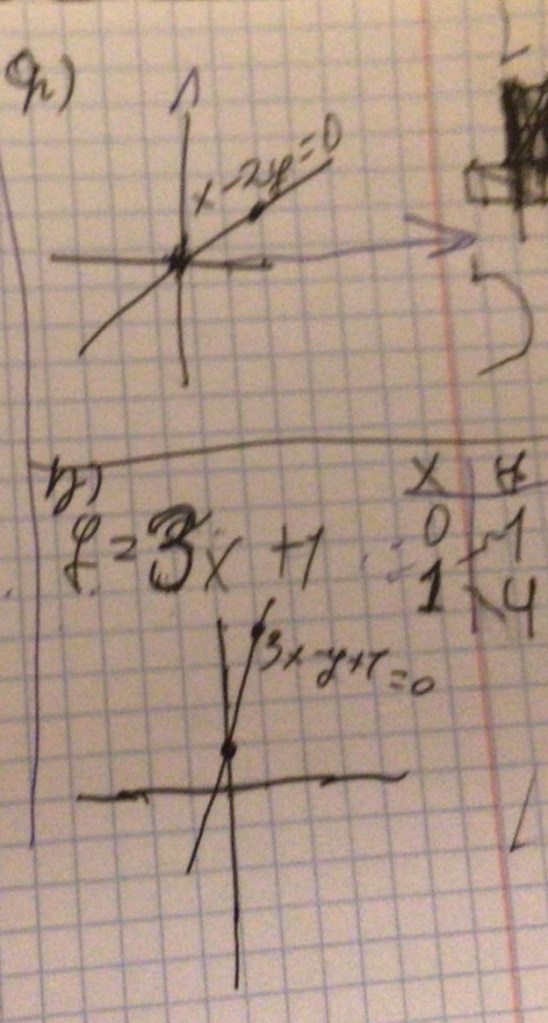 x-2y=0
y=3x+1
x y
0 1
1 4
3x-y+1=0